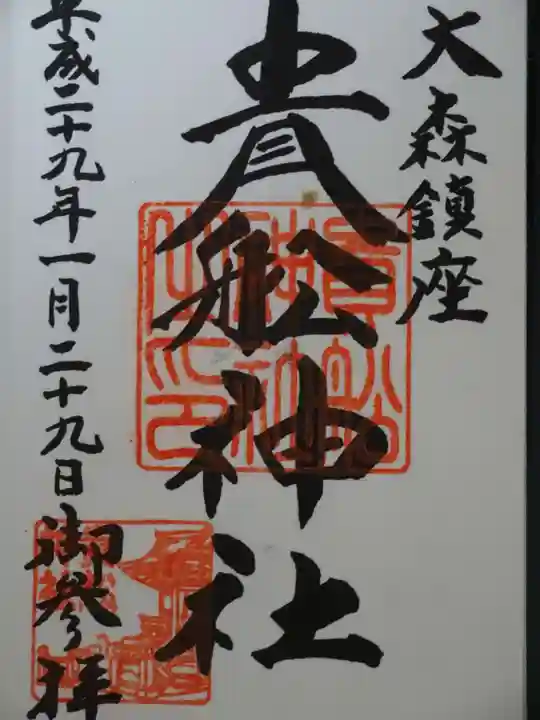 大森鎮座
貴舩神社
平成二十九年一月二十九日御参拝